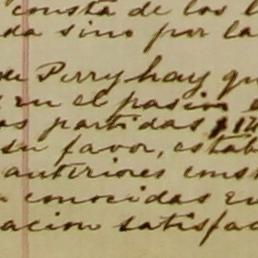 consta de los l
da sino por la
de Perry hay qu
en el pasivo
os partidas $ 12
su favor, estab
anteriores cons
conocidas en
acion satisfac